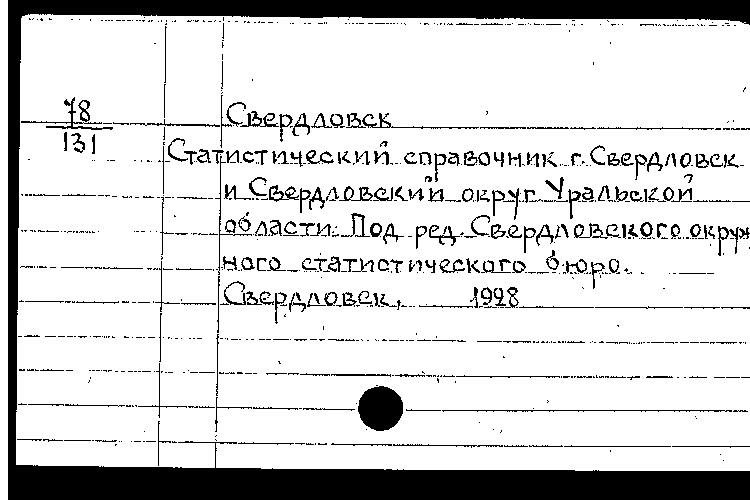 78
131
Свердловск
Статистический справочник г. Свердловск
и Свердловский округ Уральской
области. Под ред. Свердловского окруж
ного статистического бюро.
Свердловск, 1928